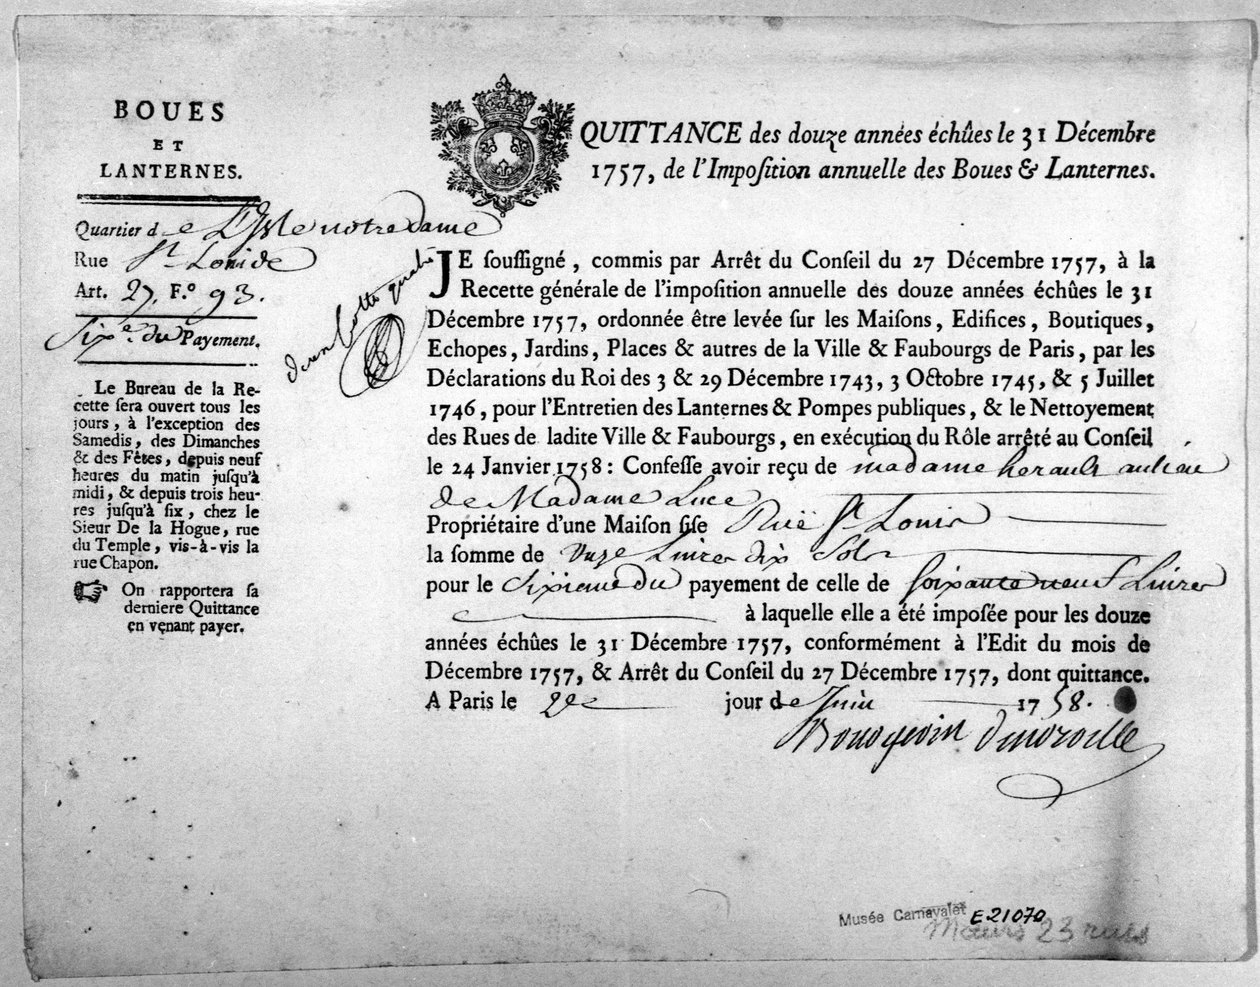 BOUES
ET
LANTERNES.
Quartier de L'Isle notre dame
Rue St. Louis
Art. 27. F.º 93.
Six.e du Payement.
Le Bureau de la Re-
cette ſera ouvert tous les
jours, à l'exception des
Samedis, des Dimanches
& des Fêtes, depuis neuf
heures du matin juſqu'à
midi, & depuis trois heu-
res juſqu'à ſix, chez le
Sieur De la Hogue, rue
du Temple, vis-à-vis la
rue Chapon.
☞ On rapportera ſa
derniere Quittance
en venant payer.
QUITTANCE des douze années échûes le 31 Décembre
1757, de l'Impoſition annuelle des Boues & Lanternes.
JE ſouſſigné, commis par Arrêt du Conſeil du 27 Décembre 1757, à la
Recette générale de l'impoſition annuelle des douze années échûes le 31
Décembre 1757, ordonnée être levée ſur les Maiſons, Edifices, Boutiques,
Echopes, Jardins, Places & autres de la Ville & Faubourgs de Paris, par les
Déclarations du Roi des 3 & 29 Décembre 1743, 3 Octobre 1745, & 5 Juillet
1746, pour l'Entretien des Lanternes & Pompes publiques, & le Nettoyement
des Rues de ladite Ville & Faubourgs, en exécution du Rôle arrêté au Conſeil
le 24 Janvier 1758: Confeſſe avoir reçu de madame herault au lieu
de Madame Luce
Propriétaire d'une Maiſon ſiſe Ruë St. Louis
la ſomme de Unze Livres dix Sols
pour le Sixieme du payement de celle de soixante neuf Livres
à laquelle elle a été impoſée pour les douze
années échûes le 31 Décembre 1757, conformément à l'Edit du mois de
Décembre 1757, & Arrêt du Conſeil du 27 Décembre 1757, dont quittance.
A Paris le 2e jour de Juin 1758.
Musée Carnavalet E.21070
Mœurs 23 rues